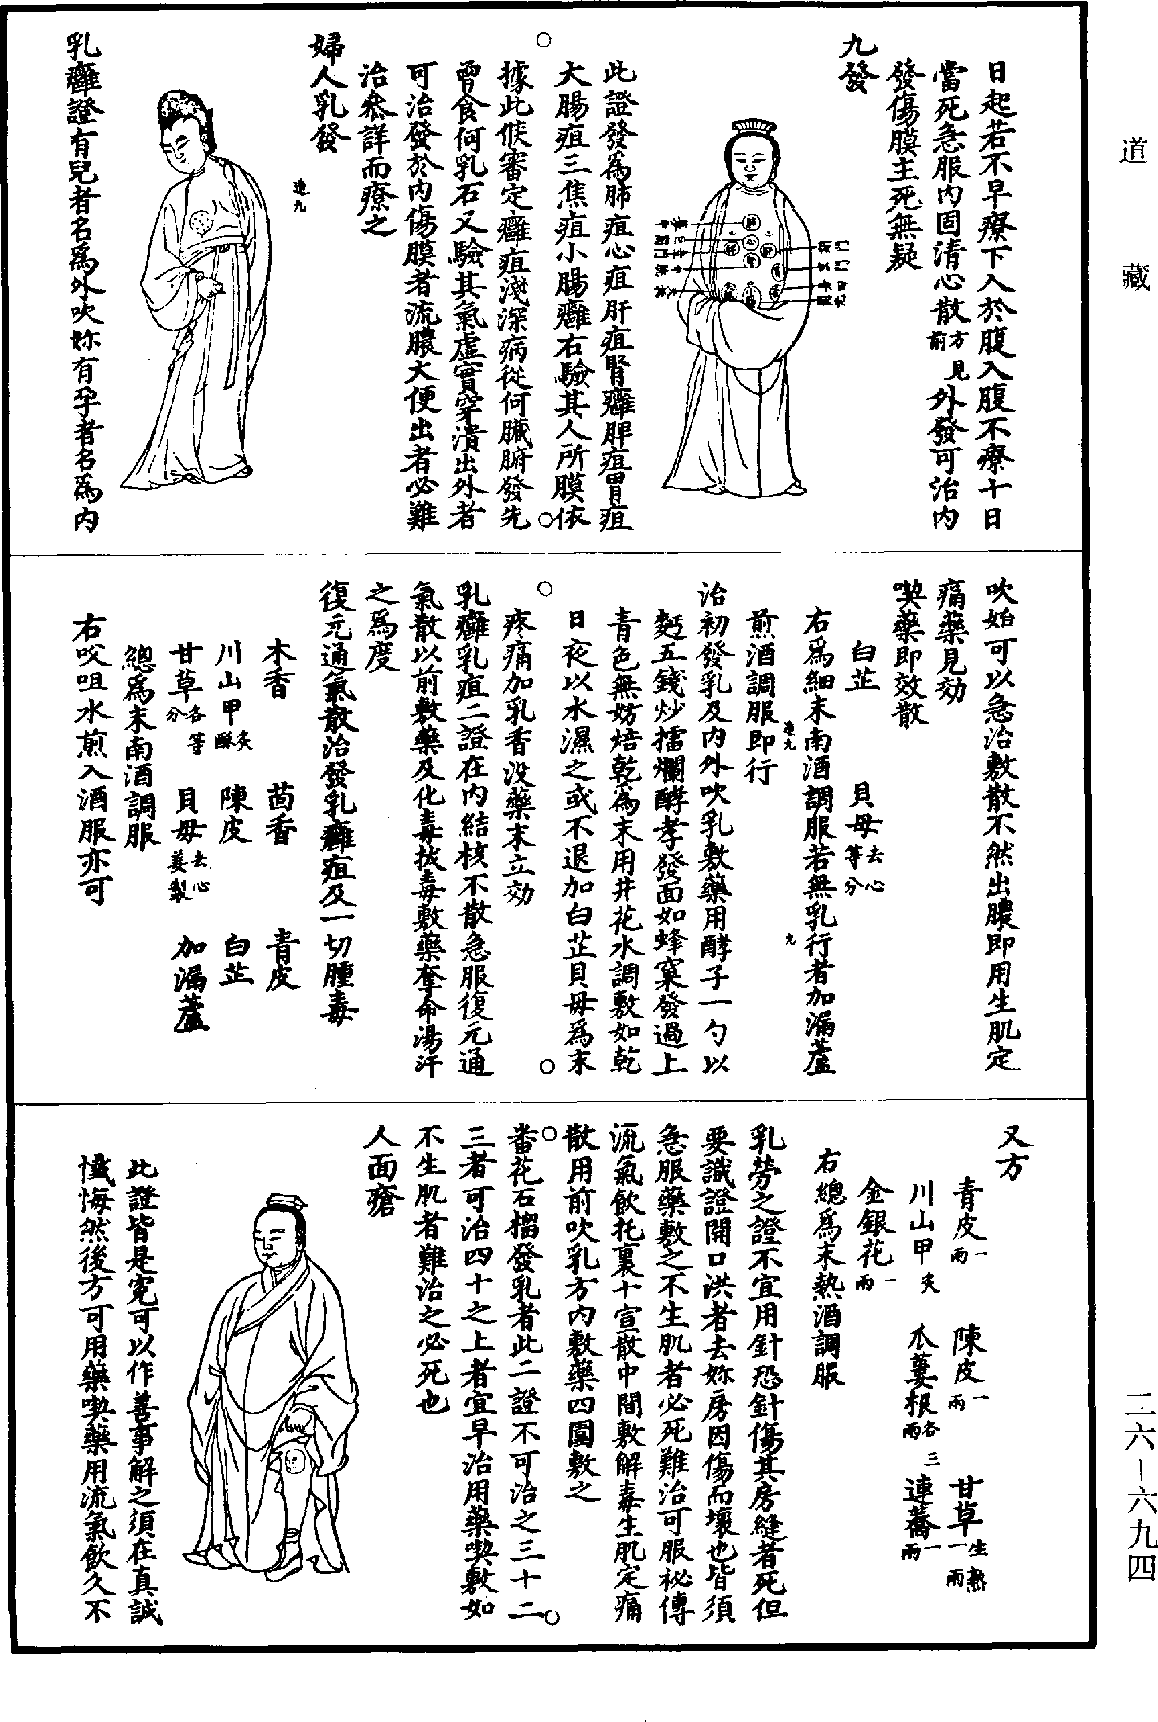 道藏
日起若不早療下入於腹入腹不療十日
當死急服內固清心散方見前外發可治內
發傷膜主死無疑
九發
此證發為肺疽心疽肝疽腎癰脾疽胃疽
大腸疽三焦疽小腸癰右驗其人所膜依
據此候審定癰疽淺深病從何臟腑發先
曾食何乳石又驗其氣虛實穿潰出外者
可治發於內傷膜者流膿大便出者必難
治叅詳而療之
婦人乳發
乳癰證有兒者名為外吹妳有孕者名為內
吹始可以急治敷散不然出膿即用生肌定
痛藥見効
喫藥即效散
白芷 貝母去心等分
右為細末南酒調服若無乳行者加漏蘆
煎酒調服即行
治初發乳及內外吹乳敷藥用酵子一勺以
麪五錢炒擂爛酵孝發面如蜂窠發過上
青色無妨焙乾為末用井花水調敷如乾
日夜以水濕之或不退加白芷貝母為末
疼痛加乳香沒藥末立効
乳癰乳疽二證在內結核不散急服復元通
氣散以前敷藥及化毒拔毒敷藥奪命湯汗
之為度
復元通氣散治發乳癰疽及一切腫毒
木香 茴香 青皮
川山甲炙酥 陳皮 白芷
甘草各等分 貝母去心姜製 加漏蘆
總為末南酒調服
右㕮咀水煎入酒服亦可
又方
青皮一兩 陳皮一兩 甘草生一兩熟一兩
川山甲炙 瓜蔞根各三兩 連蕎一兩
金銀花一兩
右總為末熱酒調服
乳勞之證不宜用針恐針傷其房縫者死但
要識證開口洪者去妳房因傷而壞也皆須
急服藥敷之不生肌者必死難治可服祕傳
流氣飲托裏十宣散中間敷解毒生肌定痛
散用前吹乳方內敷藥四圍敷之
番花石榴發乳者此二證不可治之三十二
三者可治四十之上者宜早治用藥喫敷如
不生肌者難治之必死也
人面瘡
此證皆是寃可以作善事解之須在真誠
懺悔然後方可用藥喫藥用流氣飲久不
二六—六九四